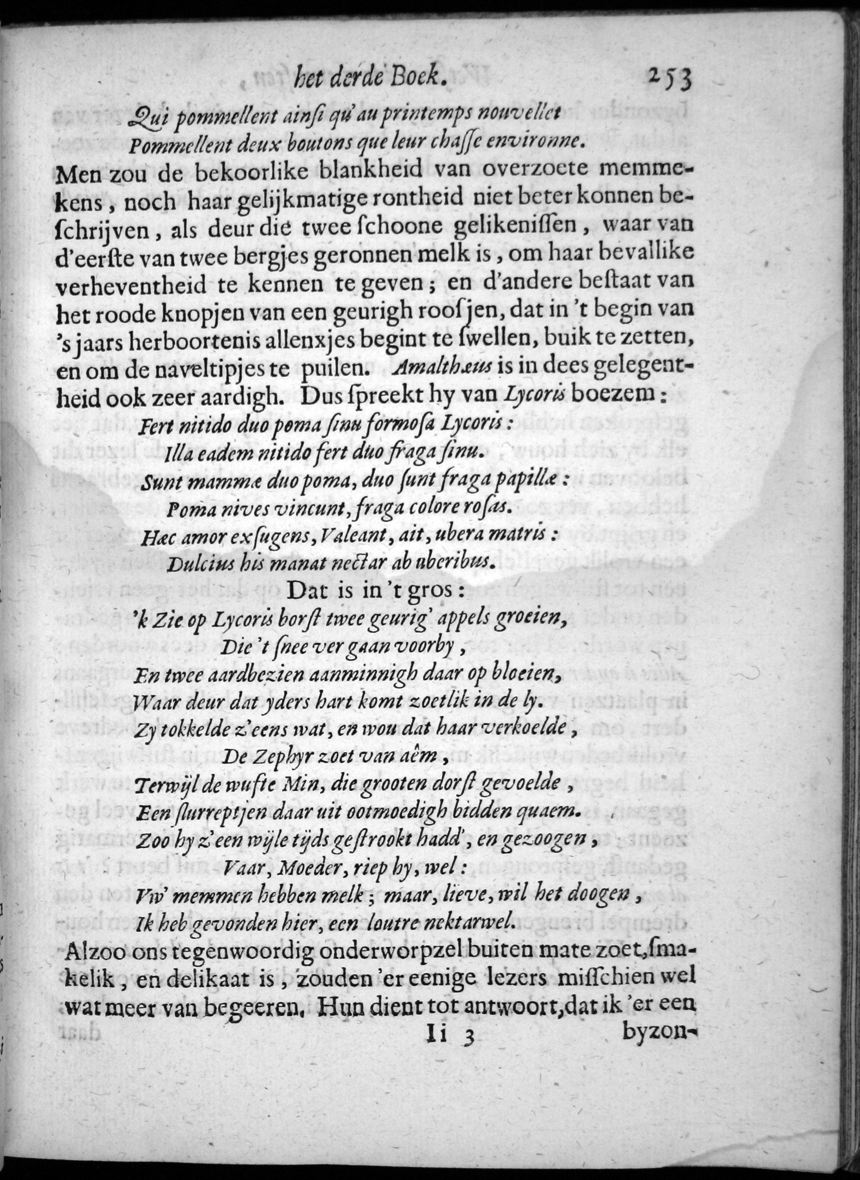 het derde Boek. 253
Qui pommellent ainſi qu'au printemps nouvellet
Pommellent deux boutons que leur chaſſe environne.
Men zou de bekoorlike blankheid van overzoete memme-
kens, noch haar gelijkmatige rontheid niet beter konnen be-
ſchrijven, als deur die twee ſchoone gelikeniſſen, waar van
d'eerſte van twee bergjes geronnen melk is, om haar bevallike
verheventheid te kennen te geven; en d'andere beſtaat van
het roode knopjen van een geurigh roosjen, dat in 't begin van
's jaars herboortenis allenxjes begint te ſwellen, buik te zetten,
en om de naveltipjes te puilen. Amalthæus is in dees gelegent-
heid ook zeer aardigh. Dus ſpreekt hy van Lycoris boezem:
Fert nitido duo poma ſinu formoſa Lycoris:
Illa eadem nitido fert duo fraga ſinu.
Sunt mammæ duo poma, duo ſunt fraga papillæ:
Poma nives vincunt, fraga colore roſas.
Hæc amor exſugens, Valeant, ait, ubera matris:
Dulcius his manat nectar ab uberibus.
Dat is in 't gros:
'k Zie op Lycoris borſt twee geurig' appels groeien,
Die 't ſnee ver gaan voorby,
En twee aardbezien aanminnigh daar op bloeien,
Waar deur dat yders hart komt zoetlik in de ly.
Zy tokkelde z'eens wat, en wou dat haar verkoelde,
De Zephyr zoet van aêm,
Terwijl de wufte Min, die grooten dorſt gevoelde,
Een ſlurreptjen daar uit ootmoedigh bidden quaem.
Zoo hy z'een wijle tijds geſtrookt hadd', en gezoogen,
Vaar, Moeder, riep hy, wel:
Vw' memmen hebben melk; maar, lieve, wil het doogen,
Ik heb gevonden hier, een loutre nektarwel.
Alzoo ons tegenwoordig onderworpzel buiten mate zoet, ſma-
kelik, en delikaat is, zouden 'er eenige lezers miſſchien wel
wat meer van begeeren. Hun dient tot antwoort, dat ik 'er een
Ii 3 byzon-